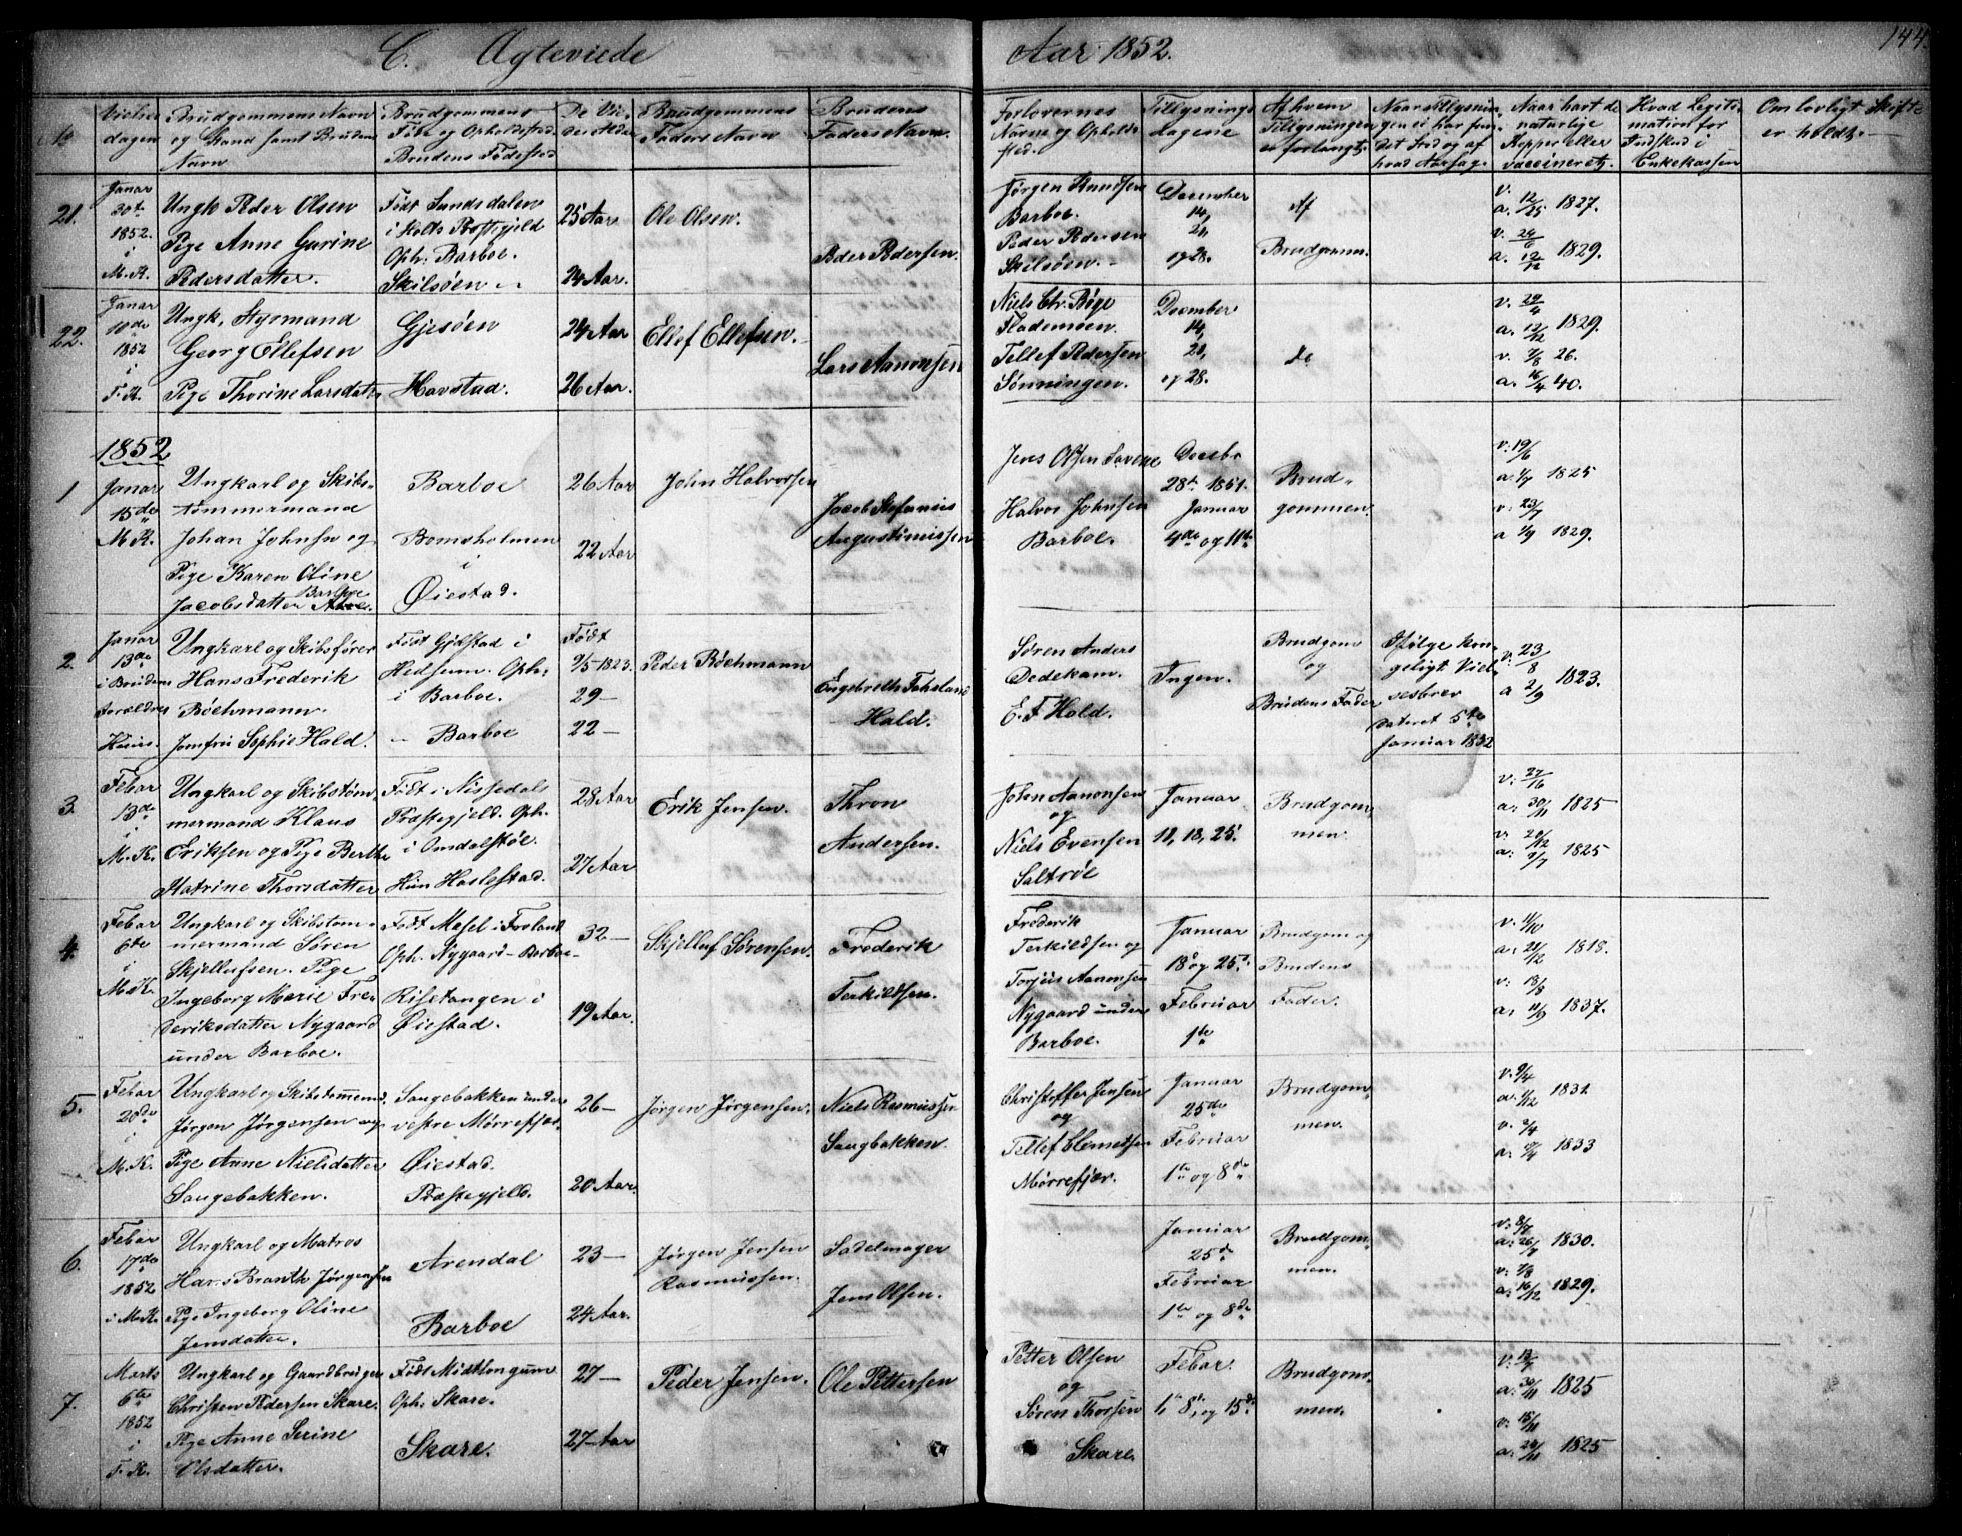 C. Ægteviede
Aar 1852.
144.
No
Vielses
dagen
Brudgommens Navn
og Stand samt Brudens
Navn
Brudgommens
Føde og Opholdssted.
Brudens Fødested
De Vie-
des Alder
Brudgommens
Faders Navn
Brudens
Faders Navn.
Forlovernes
Navne og Opholds
sted.
Tillysnings
dagene
Af hvem
Tillysningen
er forlangt.
Naar Tillysnin-
gen ei har fun-
det Sted og af
hvad Aarsag.
Naar havt de
naturlige
Kopper eller
vaccineret.
Hvad Legiti-
mation for
Indskud i
Enkekassen
Om lovligt Skifte
er holdt.
21.
Janar
30te
1852.
i
M.K.
Ungk Peder Olsen
Pige Anne Gurine
Pedersdatter.
Født Sundsdalen
i Holts Præstegjeld
Oph. Barboe.
Skilsøen
25 Aar
24 Aar.
Ole Olsen.
Peder Pedersen.
Jørgen Knudsen
Barboe.
Peder Pedersen
Skilsøen.
December
14,
21,
og 28.
Af
Brudgomm.
v. 12/25 1827.
a.
v. 24/6
a. 12/12 1829.
22.
Janar
10de
1852
i
F.K.
Ungk, Styrmand
Georg Ellefsen
Pige Thorine Larsdatter
Gjesøen
Havstad.
24 Aar
26 Aar.
Ellef Ellefsen.
Lars Aanonsen
Niels Chr. Bøge
Flademoen.
Tellef Pedersen
Sønningen.
December
14,
21,
og 28.
do
v. 29/4
a. 12/12 1829.
v. 7/8 26.
a. 16/4 40.
1852
1
Janar
15de
M.K.
Ungkarl og Skibs-
tømmermand
Johan Johnsen og
Pige Karen Oline
Jacobsdatter Barboe
Barboe
Bomsholmen
i
Øiestad.
26 Aar
22 Aar
John Halvorsen
Jacob Stefanus
Augustinussen
Jens Olsen
Halvor Johnsen
Barboe.
Decebr
28de 1851.
Januar
4de og 11te
Brud-
gommen.
v. 19/6
a. 4/7 1825
v. 23/7
a 1/9 1829.
2.
Janar
13de
i Brudens
Forældres
Huus.
Ungkarl og Skibsfører
Hans Frederik
Bøchmann.
Jomfru Sophie Hald.
Født Gjelstad i
Hedsum. Oph.
i Barboe.
Barboe
Født
9/5 1823.
29 —
22 —
Peder Bøchmann
Engebreth Fahsland
Hald.
Søren Anders
Dedekam.
E. F. Hald.
Ingen.
Brudgom
og
Brudens Fader
Ifølge kon-
geligt Viel-
sesbrev
dateret 5te
Januar 1852
v. 23/8
a 2/9 1823.
3.
Febar
13de
i
M.K.
Ungkarl og Skibstøm-
mermand Klaus
Eriksen og Pige Berthe
Katrine Thorsdatter
Født i Nissedals
Præstegjeld. Oph.
i Omdalstøe.
Hun Haslestad.
28 Aar
27 Aar
Erik Jensen.
Thron
Andersen.
John Aanonsen
og
Niels Evensen
Saltrøe
Januar
11, 18, 25.
Brudgom-
men.
v. 27/16
a. 30/11 1825
v. 20/12
a. 9/7 1825
4.
Febar
6te
i
M.K.
Ungkarl og Skibstøm-
mermand Søren
Skjellufsen. Pige
Ingeborg Marie Fre-
deriksdatter Nygaard
under Barboe.
Født Mesel i Froland
Oph. Nygaard - Barboe-
Risetangen i
Øiestad.
32 —
19 Aar.
Skjelluf Sørensen.
Frederik
Terkildsen.
Frederik
Terkildsen og
Torjus Aanonsen
Nygaard under
Barboe.
Januar
18 og 25.
Februar
1te
Brudgom og
Brudens
Fader.
v. 11/10
a. 21/12 1818.
v. 18/8
a. 11/9 1837.
5.
Febar
20de
i
M.K.
Ungkarl og Skibstømmermd.
Jørgen Jørgensen og
Pige Anne Nielsdatter
Saugebakken.
Saugebakken under
vestre Mørrefjær.
Øiestad.
Præstegjeld.
26 —
20 Aar.
Jørgen Jørgensen.
Niels Rasmussen
Saugbakken.
Christoffer Jensen
og
Tellef Clemetsen
Mørrefjær.
Januar
25de
Februar
1te og 8de
Brudgom-
men.
v. 9/4
a. 1/12 1831
v. 3/4
a. 1833
6.
Febar
17de
1852
i M.K.
Ungkarl og Matros
Hans Branth Jørgensen
Pige Ingeborg Oline
Jensdatter.
Arendal
Barboe
23 —
24 Aar.
Jørgen Jensen
Rasmussen.
Sadelmager
Jens Olsen.
Januar
25de
Februar
1te og 8de
Brudgom-
men.
v. 8/7
a. 26/7 1830.
v. 7/8
a. 16/12 1829.
7.
Marts
6te
1852
i
F.K.
Ungkarl og Gaardbruger
Christen Pedersen Skare.
Pige Anne Serine
Olsdatter.
Født Midtlongum
Oph. Skare.
Skare.
27 —
27 Aar
Peder Jensen.
Ole Pettersen
Petter Olsen
og
Søren Thorsen
Skare.
Febar.
1, 8, og 15de
Brudgom-
men.
v. 13/7
a. 30/11 1825
v. 15/11
a. 24/11 1825